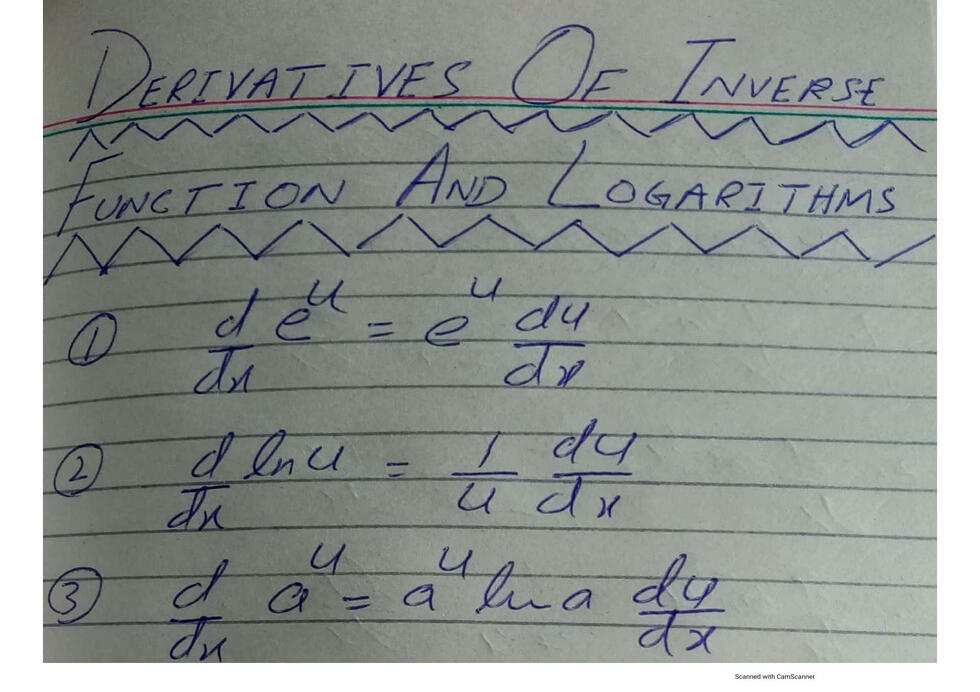 DERIVATIVES OF INVERSE
FUNCTION AND LOGARITHMS
① d/dx e^u = e^u du/dx
② d/dx ln u = 1/u du/dx
③ d/dx a^u = a^u ln a du/dx
Scanned with CamScanner